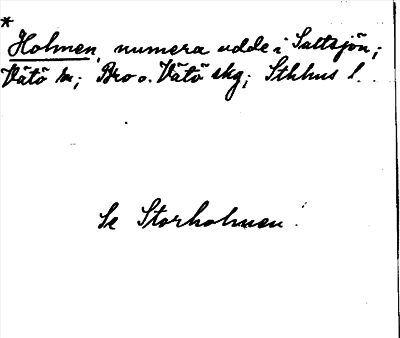 *
Holmen, numera udde i Saltsjön;
Vätö sn; Bro o. Vätö skg; Sthlms l.
Se Storholmen.